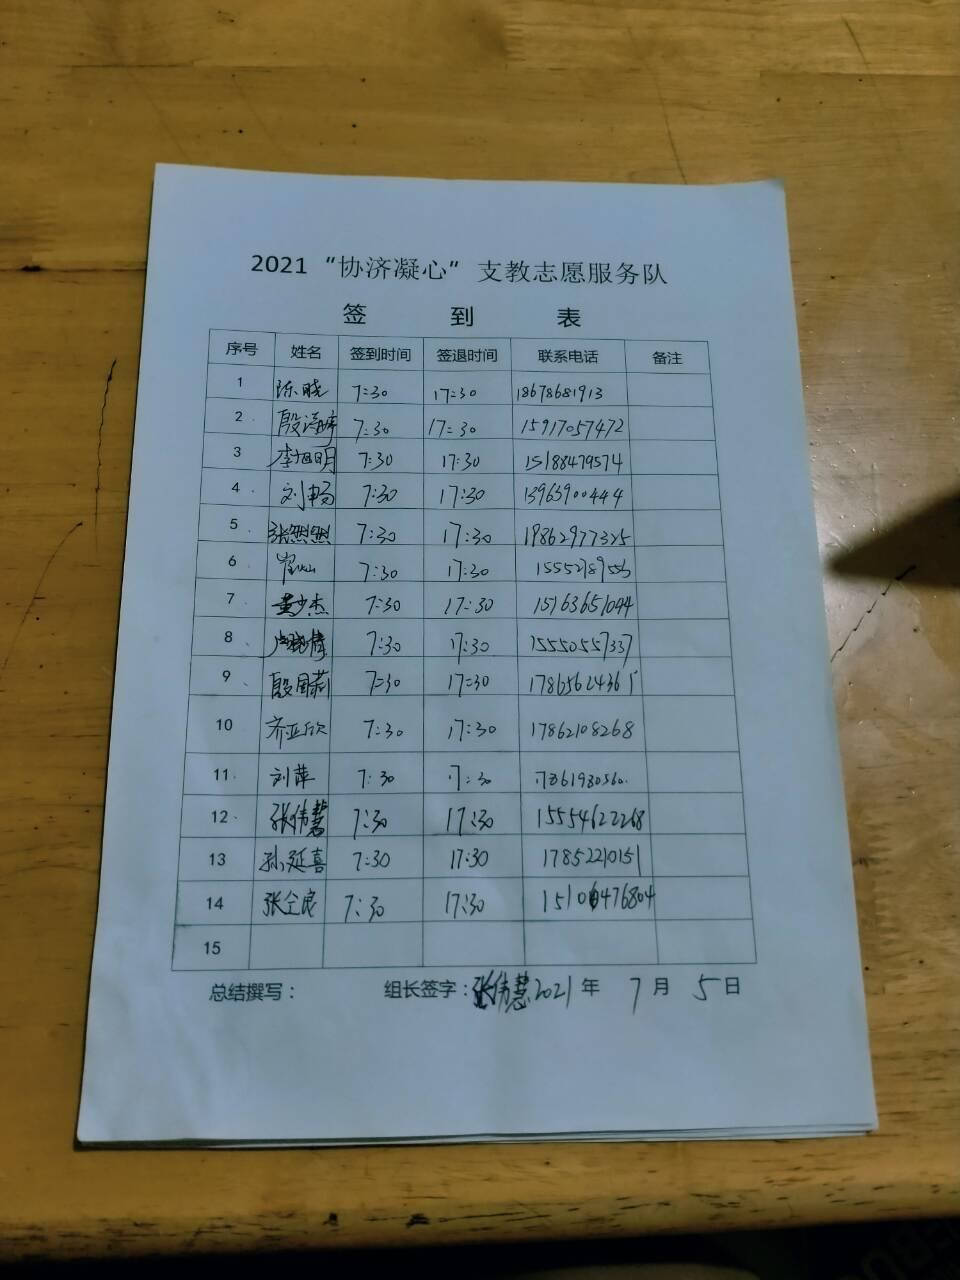 2021 “协济凝心” 支教志愿服务队
签 到 表
序号 姓名 签到时间 签退时间 联系电话 备注
1 陈晓 7:30 17:30 18678681913
2 殷 7:30 17:30 15917057472
3 李旭明 7:30 17:30 15188479574
4 刘畅 7:30 17:30 13963900444
5 张熙熙 7:30 17:30 19862977325
6 7:30 17:30
7 黄少杰 7:30 17:30 15163651044
8 卢晓倩 7:30 17:30 15550557337
9 殷国莉 7:30 17:30 17865624361
10 齐亚欣 7:30 17:30 17862108268
11 刘萍 7:30 17:30
12 张伟慧 7:30 17:30 15554622268
13 孙延喜 7:30 17:30 17852210151
14 张全良 7:30 17:30
15
总结撰写： 组长签字：张伟慧 2021 年 7 月 5 日